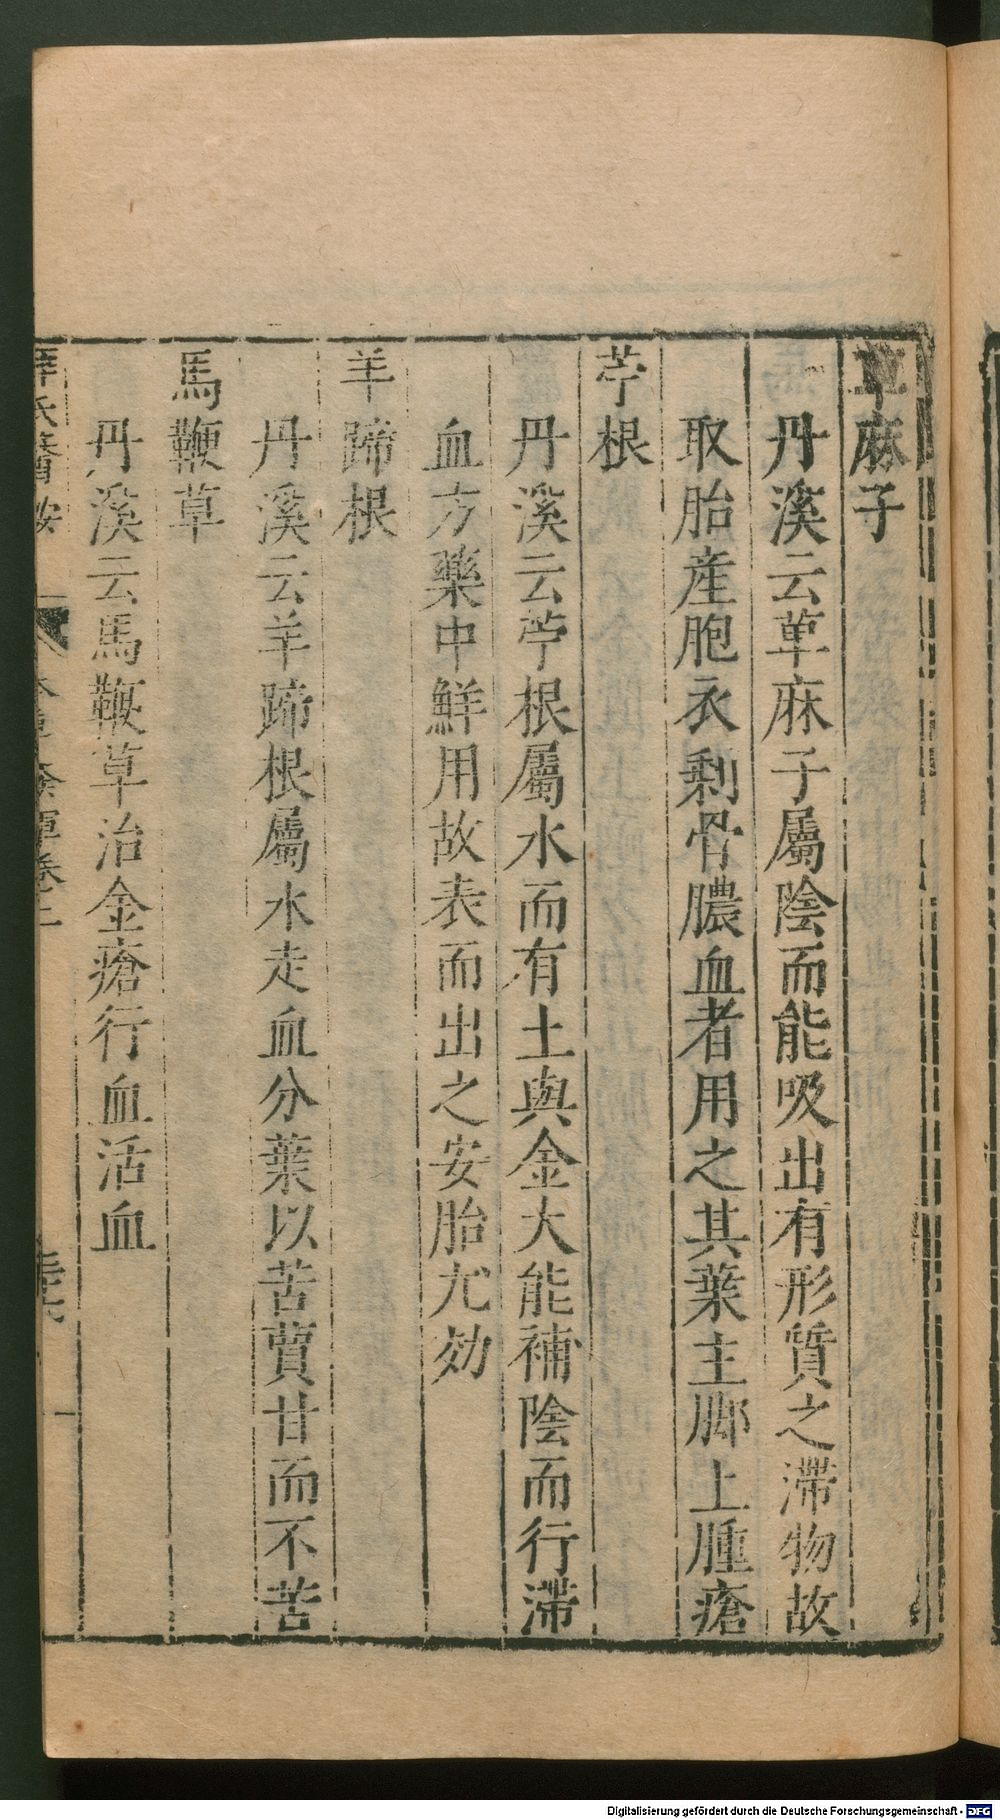 萆麻子
丹溪云萆麻子屬陰而能吸出有形質之滯物故
取胎產胞衣剩骨膿血者用之其葉主脚上腫瘡
苧根
丹溪云苧根屬水而有土與金大能補陰而行滯
血方藥中鮮用故表而出之安胎尤効
羊蹄根
丹溪云羊蹄根屬水走血分葉以苦蕒甘而不苦
馬鞭草
丹溪云馬鞭草治金瘡行血活血
Digitalisierung gefördert durch die Deutsche Forschungsgemeinschaft - DFG